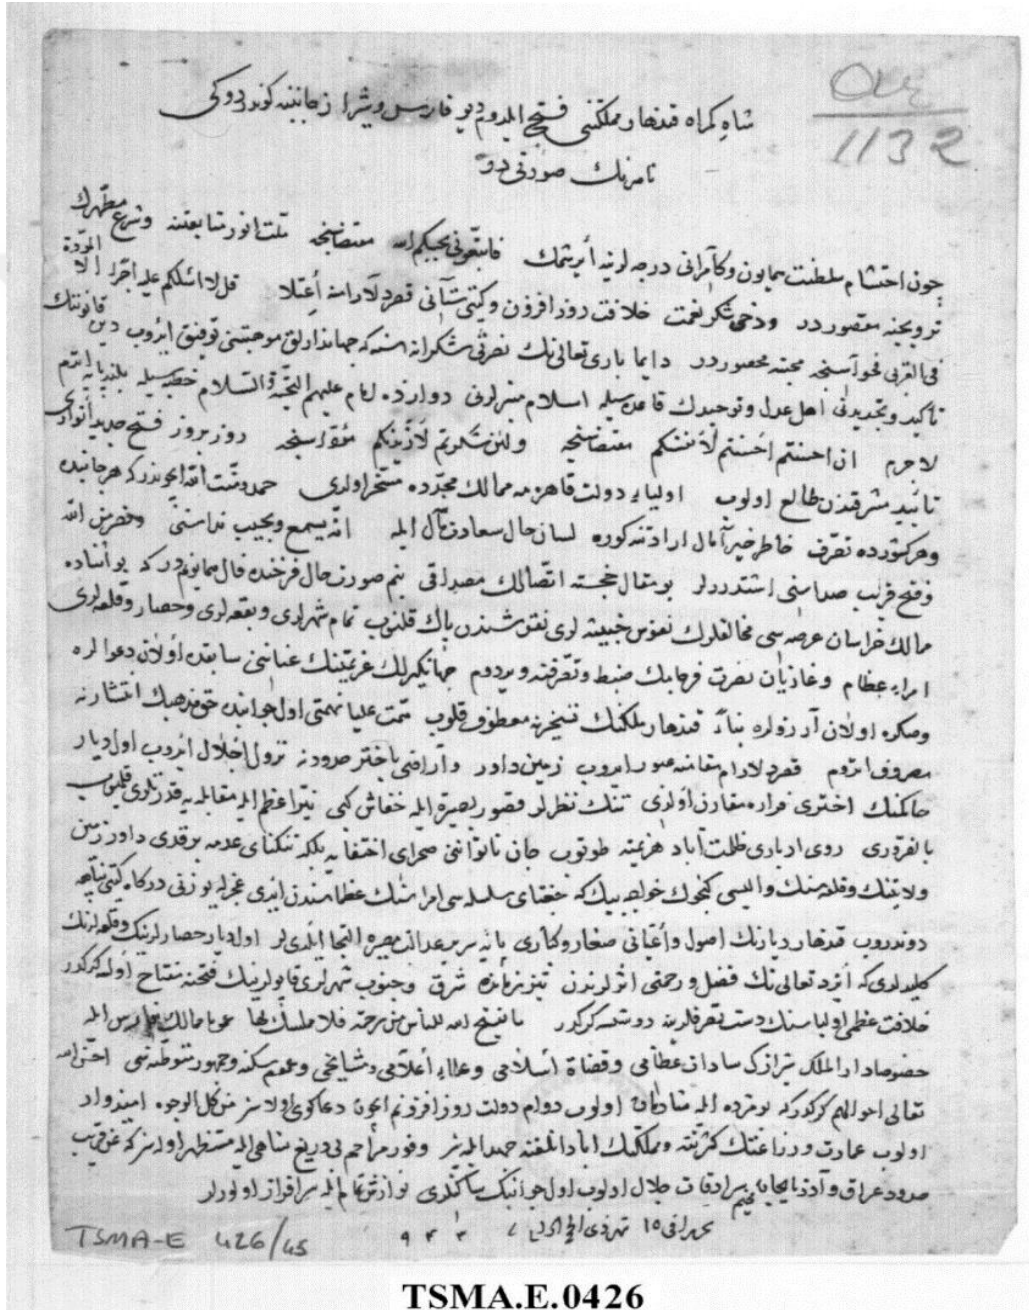 1132
شاه كمراه قندهار مملكتنى فتح ايلدوم ديو فارس وشيراز جانبنه كوندردوكى
نامه نك صورتى در
چون احتشام سلطنت همايون وكامرانى درجه لرينه ايرشمك فاتبعونى يحببكم الله مقتضاسنجه ملت انور متابعتنه وشرع مطهرك
ترويجنه مقصوردر ودخى شكر نعمت خلافت روز افزون وكيتى ستانى قل لا اسئلكم عليه اجرا الا المودة
فى القربى فحواسنجه محبته محصوردر دايما بارى تعالى نك نصرتى شكرانه سنه كه جهاندارلق موجبتنى توفيق ايدوب دين قانوننك
تأكيد وتجديدنى اهل عدل وتوحيدك قاعده سيله اسلام منبرلرنى دوازده امام عليهم التحية والسلام خطبه سيله بلند پايه ايتدم
لاجرم ان احسنتم احسنتم لأنفسكم مقتضاسنجه ولئن شكرتم لأزيدنكم مؤداسنجه روز بروز فتح جديد انوارى
تأييد مشرقندن طالع اولوب اولياء دولت قاهره مه ممالك مجدده مسخر اولدى حمد ومنت الله ايچوندر كه هر جانبده
وهر كشورده تصرف خاطر خير آمال ارادتنه كوره لسان حال سعادت مآل ايله انه يسمع ويجيب نداسنى ونصر من الله
وفتح قريب صداسنى اشتدردلر بو مقال خجسته اتصالك مصداقى بنم صورت حال فرخنده فال همايونمدر كه بو اثناده
ممالك خراسان عرصه سى مخالفلرك نفوس خبيثه لرى نقوشندن پاك قلنوب تمام شهرلرى وبقعه لرى وحصار وقلعه لرى
امراء عظام وغازيان نصرت فرجامك ضبط وتصرفنه ويردوم جهانكيرلك عزيمتينك عناننى سابقده اولان دعوالره
وصكره اولان آرزولره بناءً قندهار ملكنك تسخيرنه معطوف قلوب همت عليا نهمتى اول جوانبده حق مذهبك انتشارنه
مصروف ايتدوم عبور ايدوب زمين داور واراضى باختر حدودنه نزول اجلال ايدوب اول ديار
حاكمنك اخترى فراره مقارن اولدى تنك نظرلر قصور بصيرة ايله خفاش كبى نير اعظم ايله مقابله يه قدرتلرى قلميوب
بالضرورى روى ادبارى ظلمت آباد هزيمته طوتوب جان ناتواننى صحراى اختفايه بلكه تنكناى عدمه براقدى داور زمين
ولايتنك وقلعه سنك واليسى خواجه بيك كه جغتاى سلسله سى امراسنك عظماسندن ايدى عجزله يوزنى دركاه كيتى پناهه
دوندروب قندهار ديارنك اصول واعيانى صغار وكبارى پايه سرير عدالت مصيره التجا ايلديلر اول ديار حصارلرينك وقلعه لرنك
كليدلرى كه ايزد تعالى نك فضل ورحمتى اثرلرندن تيز زمانده شرق وجنوب شهرلرى قاپولرينك فتحنه مفتاح اولسه كركدر
خلافت عظمى اولياسنك دست تصرفلرينه دوشسه كركدر ما يفتح الله للناس من رحمة فلا ممسك لها عموما ممالك فارس اهله
خصوصا دار الملك شيرازك سادات عظامى وقضاة اسلامى وعلماء اعلامى ومشايخى وعموم سكنه وجمهور متوطنه سى احسن الله
تعالى احوالهم كركدر كه بو مژده ايله شادمان اولوب دوام دولت روز افزونم ايچون دعاكوى اولاسز من كل الوجوه اميدوار
اولوب عمارت وزراعتك كثرتنه ومملكتك آباد اولمقنه جهد ايلمه سز وفور مراحم بى دريغ شاهى ايله مستظهر اولاسز كه عن قريب
حدود عراق وآذربايجان سرادقات جلال اولوب اول جوانبك ساكنلرى نوازش تمام ايله سرافراز اولورلر
تحريرا فى ١٥ شهر ذى الحجة ٩٤٣
TSMA-E 426/45
TSMA.E.0426